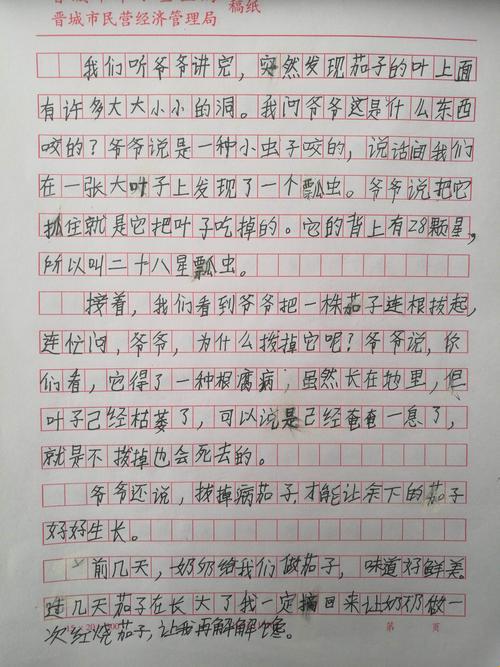 稿纸
晋城市民营经济管理局
我们听爷爷讲完，突然发现茄子的叶上面
有许多大大小小的洞。我问爷爷这是什么东西
咬的？爷爷说是一种小虫子咬的，说话间我们
在一张大叶子上发现了一个瓢虫。爷爷说把它
抓住就是它把叶子吃掉的。它的背上有28颗星，
所以叫二十八星瓢虫。
接着，我们看到爷爷把一株茄子连根拔起，
连忙问，爷爷，为什么拨掉它呢？爷爷说，你
们看，它得了一种根腐病，虽然长在地里，但
叶子已经枯萎了，可以说是已经奄奄一息了，
就是不拔掉也会死去的。
爷爷还说，拔掉病茄子，才能让余下的茄子
好好生长。
前几天，奶奶给我们做茄子，味道好鲜美。
过几天茄子在长大了我一定摘回来让奶奶做一
次红烧茄子，让我再解解馋。
第 页